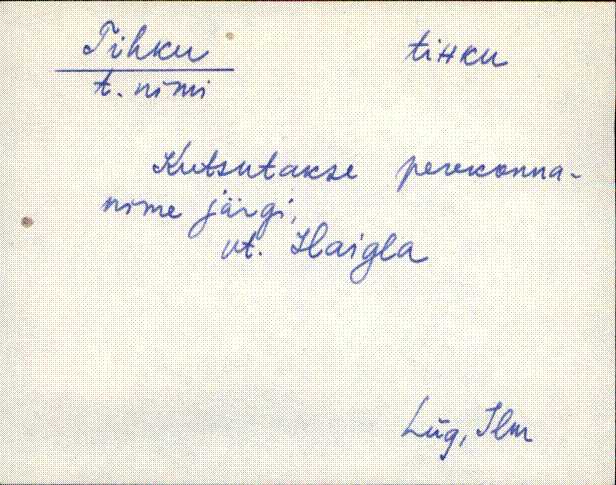 Tihku tiHku
t. nimi
Kutsutakse perekonna-
nime järgi,
vt. Haigla
Lüg, Ilm